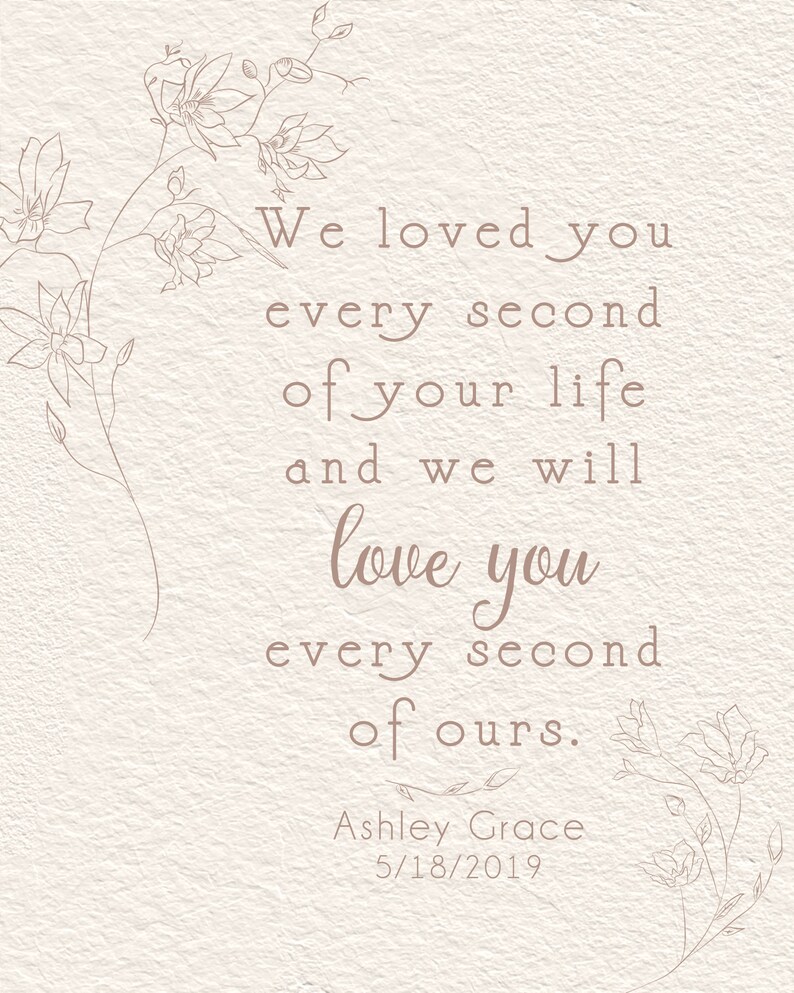 We loved you
every second
of your life
and we will
love you
every second
of ours.
Ashley Grace
5/18/2019